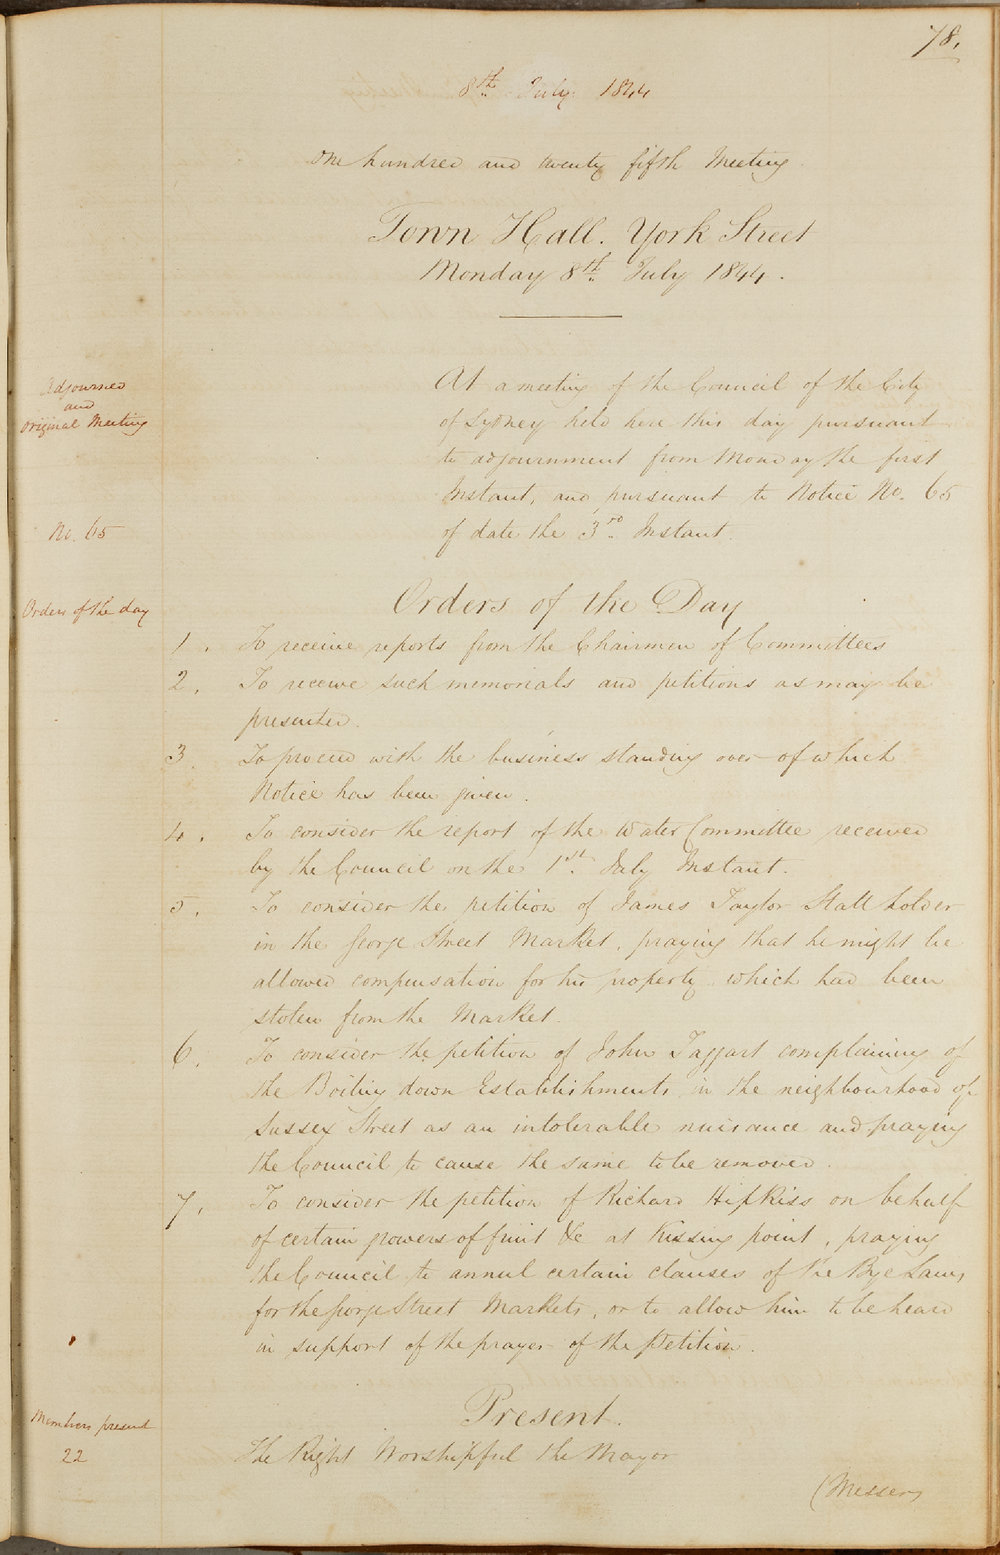 78.
8th July 1844
One hundred and twenty fifth Meeting.
Town Hall. York Street
Monday 8th July 1844.
Adjourned
and
original Meeting
At a meeting of the Council of the City
of Sydney held here this day pursuant
to adjournment from Monday the first
Instant, and pursuant to Notice No. 65
of date the 3rd Instant.
No. 65
Orders of the day
Orders of the Day
1. To receive reports from the Chairmen of Committees
2. To receive such memorials and petitions as may be
presented.
3. To proceed with the business standing over of which
Notice has been given.
4. To consider the report of the Water Committee received
by the Council on the 1st July Instant.
5. To consider the petition of James Taylor Stall holder
in the George Street Market, praying that he might be
allowed compensation for his property which had been
stolen from the Market.
6. To consider the petition of John Taggart complaining of
the Boiling down Establishments in the neighbourhood of
Sussex Street as an intolerable nuisance and praying
the Council to cause the same to be removed.
7. To consider the petition of Richard Hipkiss on behalf
of certain growers of fruit &c at Kissing point, praying
the Council to annul certain clauses of the Bye Laws
for the George Street Markets, or to allow him to be heard
in support of the prayer of the Petition.
Present.
Members present
22
The Right Worshipful the Mayor
(Messers